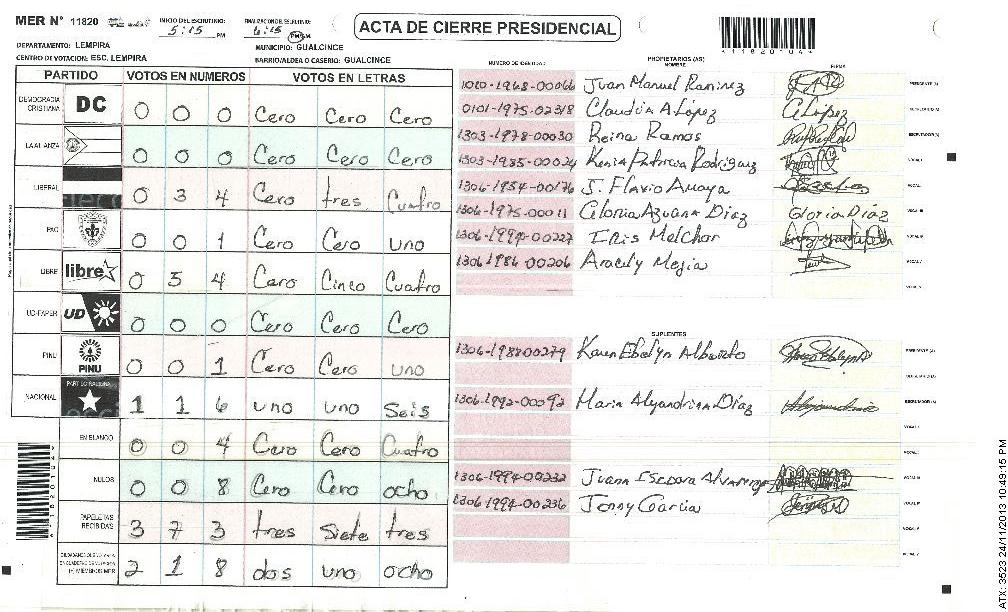 MER N° 11820
INICIO DEL ESCRUTINIO: 5:15 PM
FINALIZACION DEL ESCRUTINIO: 6:15 PM
ACTA DE CIERRE PRESIDENCIAL
1 1 8 2 0 1 0 4
DEPARTAMENTO: LEMPIRA
MUNICIPIO: GUALCINCE
CENTRO DE VOTACION: ESC. LEMPIRA
BARRIO/ALDEA O CASERIO: GUALCINCE
PARTIDO VOTOS EN NUMEROS VOTOS EN LETRAS
DEMOCRACIA CRISTIANA DC 0 0 0 Cero Cero Cero
LA ALIANZA 0 0 0 Cero Cero Cero
LIBERAL 0 3 4 Cero tres Cuatro
PAC 0 0 1 Cero Cero uno
LIBRE libre 0 5 4 Cero Cinco Cuatro
UD-FAPER UD 0 0 0 Cero Cero Cero
PINU PINU 0 0 1 Cero Cero uno
NACIONAL PARTIDO NACIONAL 1 1 6 uno uno Seis
EN BLANCO 0 0 4 Cero Cero Cuatro
NULOS 0 0 8 Cero Cero ocho
PAPELETAS RECIBIDAS 3 7 3 tres Siete tres
2 1 8 dos uno ocho
PROPIETARIOS (AS)
NUMERO DE IDENTIDAD NOMBRE FIRMA
1010-1968-00066 Juan Manuel Ramirez PRESIDENTE (A)
0101-1975-02318 Claudia A López C López SECRETARIO (A)
1303-1978-00030 Reina Ramos ESCRUTADOR (A)
1303-1985-00024 Kenia Patricia Rodriguez VOCAL I
1306-1954-00176 J. Flavio Amaya VOCAL II
1306-1975-00011 Gloria Azucena Diaz Gloria Díaz VOCAL III
1306-1994-00227 Iris Melchor VOCAL IV
1306 1986-00206 Aracely Mejia VOCAL V
SUPLENTES
1306-1988-00279 Karen Ebelyn Alberto PRESIDENTE (A)
SECRETARIO (A)
1306-1992-00092 Maria Alejandrina Diaz ESCRUTADOR (A)
VOCAL I
VOCAL II
1306-1994-00232 Juana Isidora Alvarenga VOCAL III
1306 1994-00236 Jenny Garcia VOCAL IV
VOCAL V
1 1 8 2 0 1 0 4
ATX: 3523 24/11/2013 10:49:15 PM